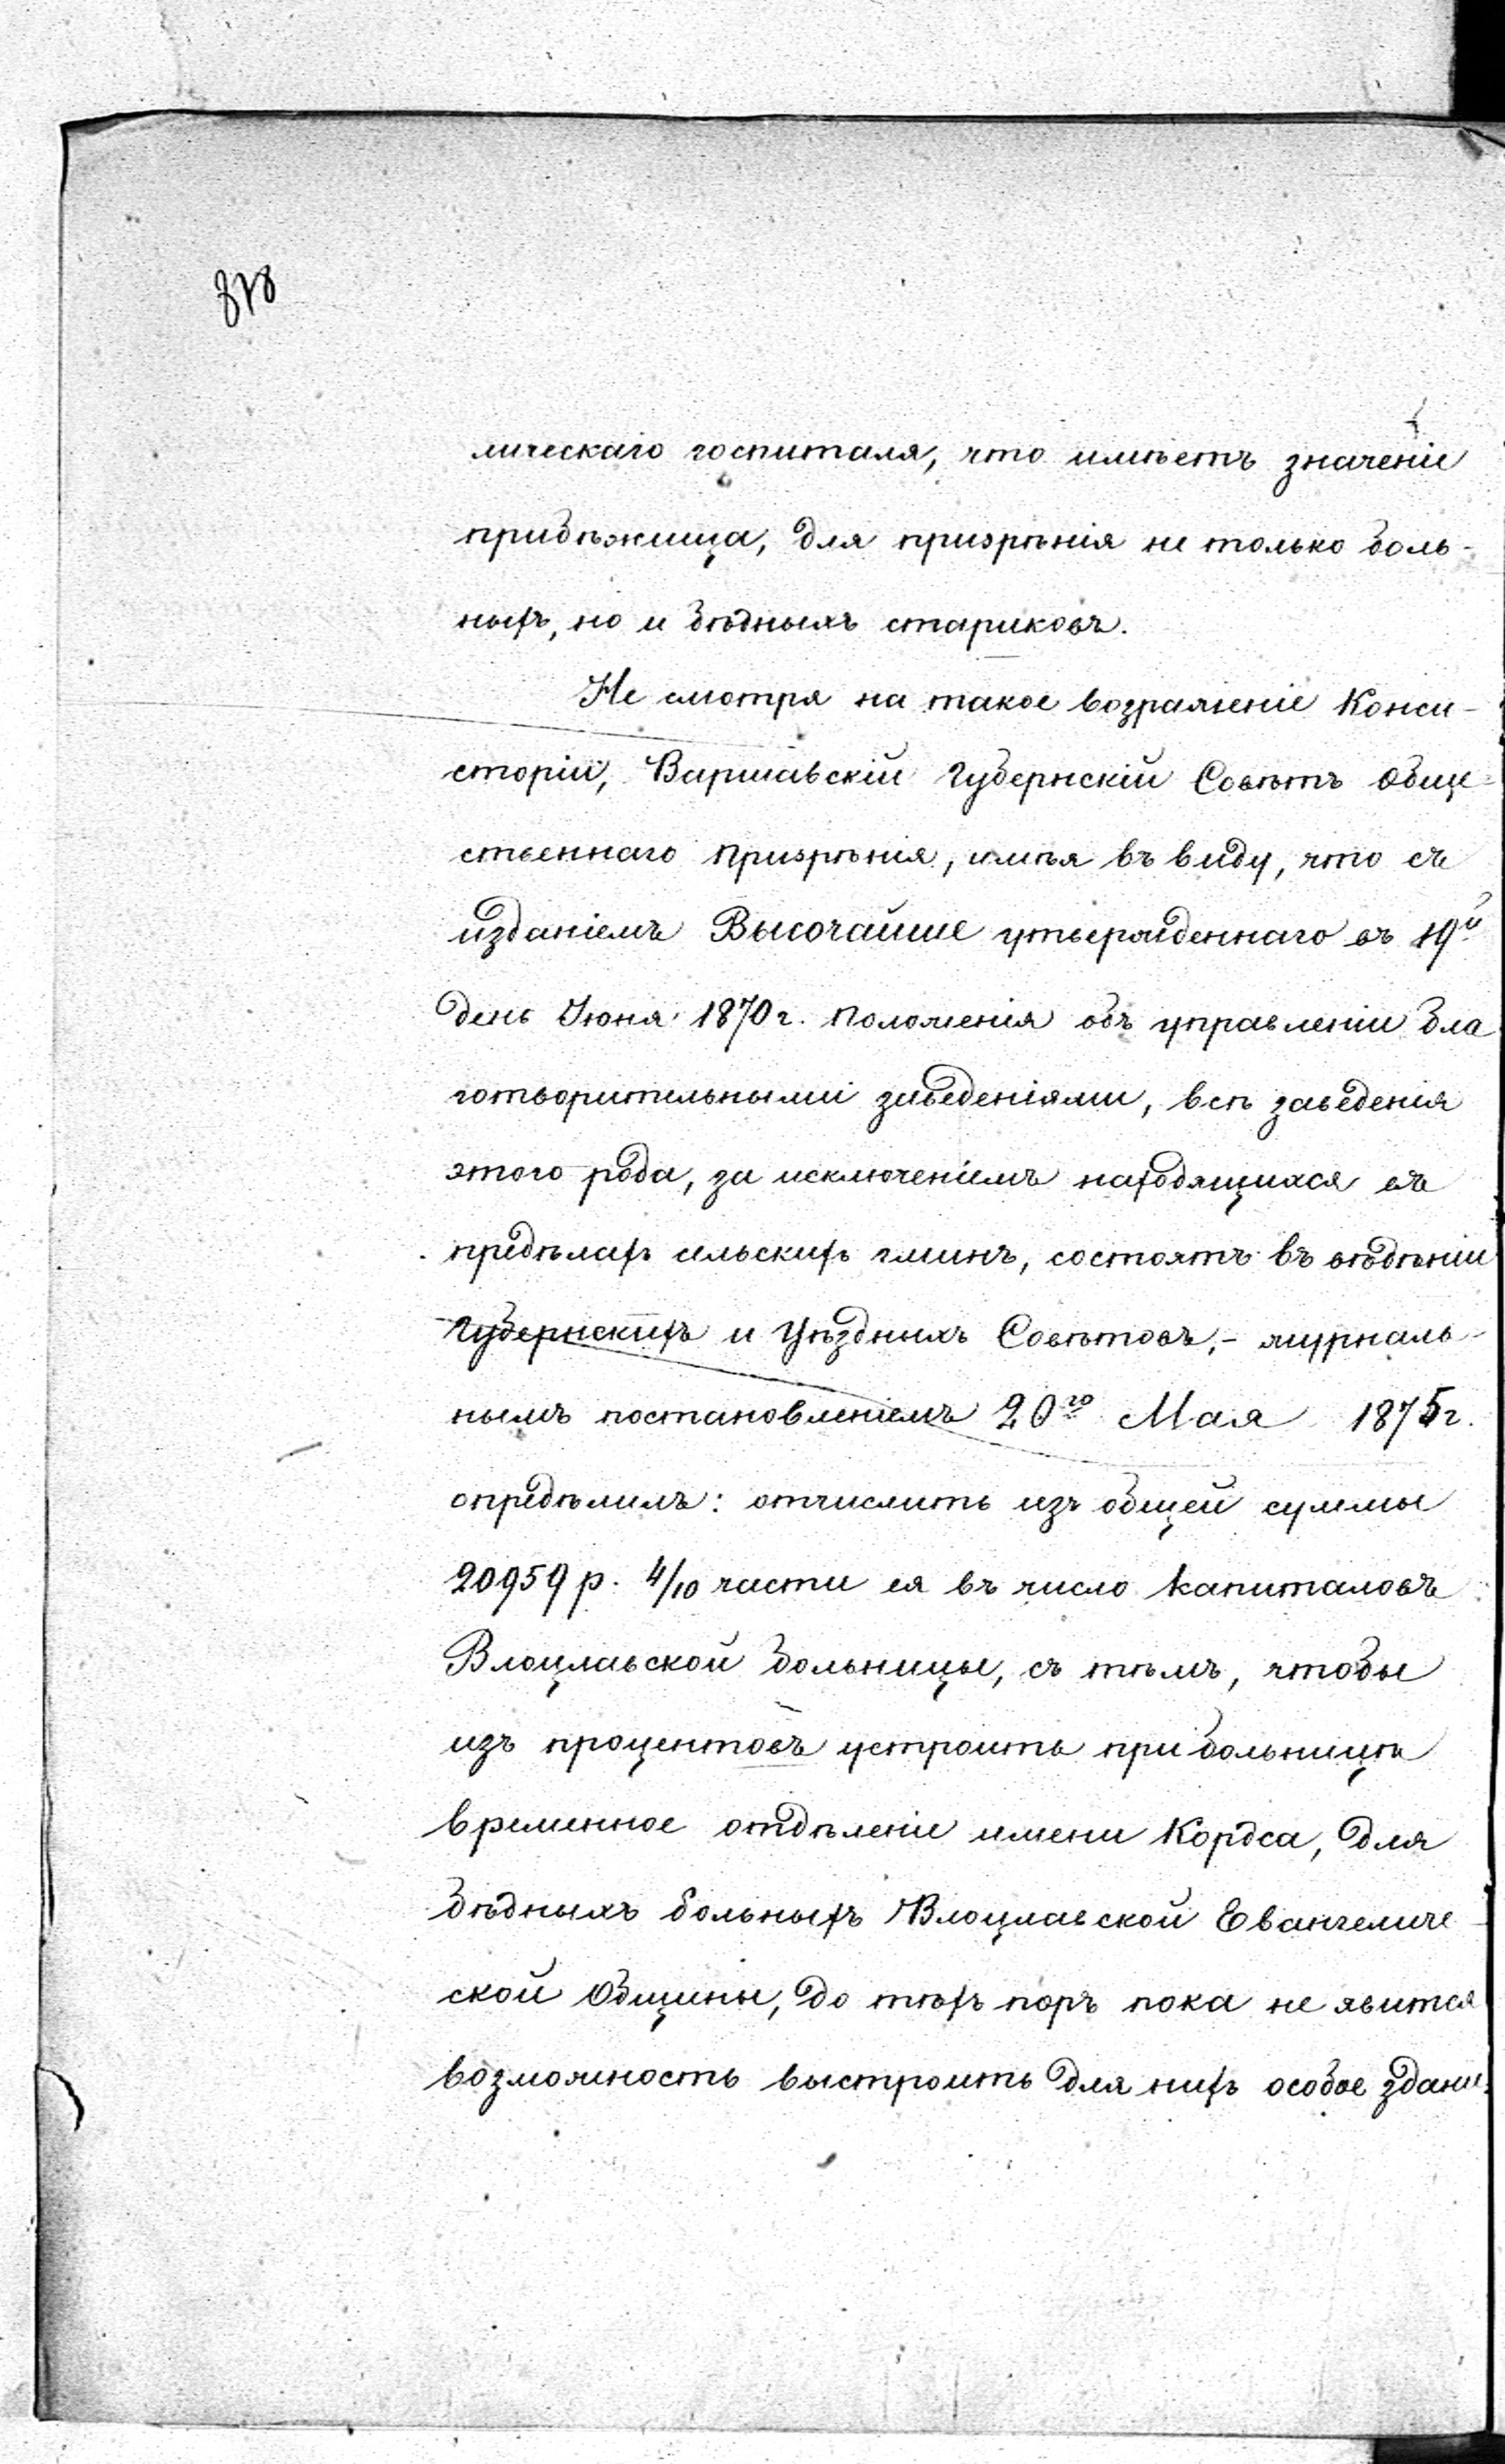 лическаго госпиталя, что имѣетъ значеніе
прибѣжища, для призрѣнія не только боль-
ныхъ, но и бѣдныхъ стариковъ.
Не смотря на такое возраженіе Конси-
сторіи, Варшавскій Губернскій Совѣтъ Обще-
ственнаго Призрѣнія, имѣя въ виду, что съ
изданіемъ Высочайше утвержденнаго въ 19й
день Іюня 1870 г. Положенія объ управленіи бла
готворительными заведеніями, всѣ заведенія
этого рода, за исключеніемъ находящихся въ
предѣлахъ сельскихъ гминъ, состоятъ въ вѣдѣніи
Губернскихъ и Уѣздныхъ Совѣтовъ,- журналь-
нымъ постановленіемъ 20го Мая 1875 г.
опредѣлилъ: отчислить изъ общей суммы
20959 р. 4/10 части ея въ число капиталовъ
Влоцлавской больницы, съ тѣмъ, чтобы
изъ процентовъ устроить при больницѣ
временное отдѣленіе имени Кордса, для
бѣдныхъ больныхъ Влоцлавской Евангеличе-
ской Общины, до тѣхъ поръ пока не явится
возможность выстроить для нихъ особое зданіе.